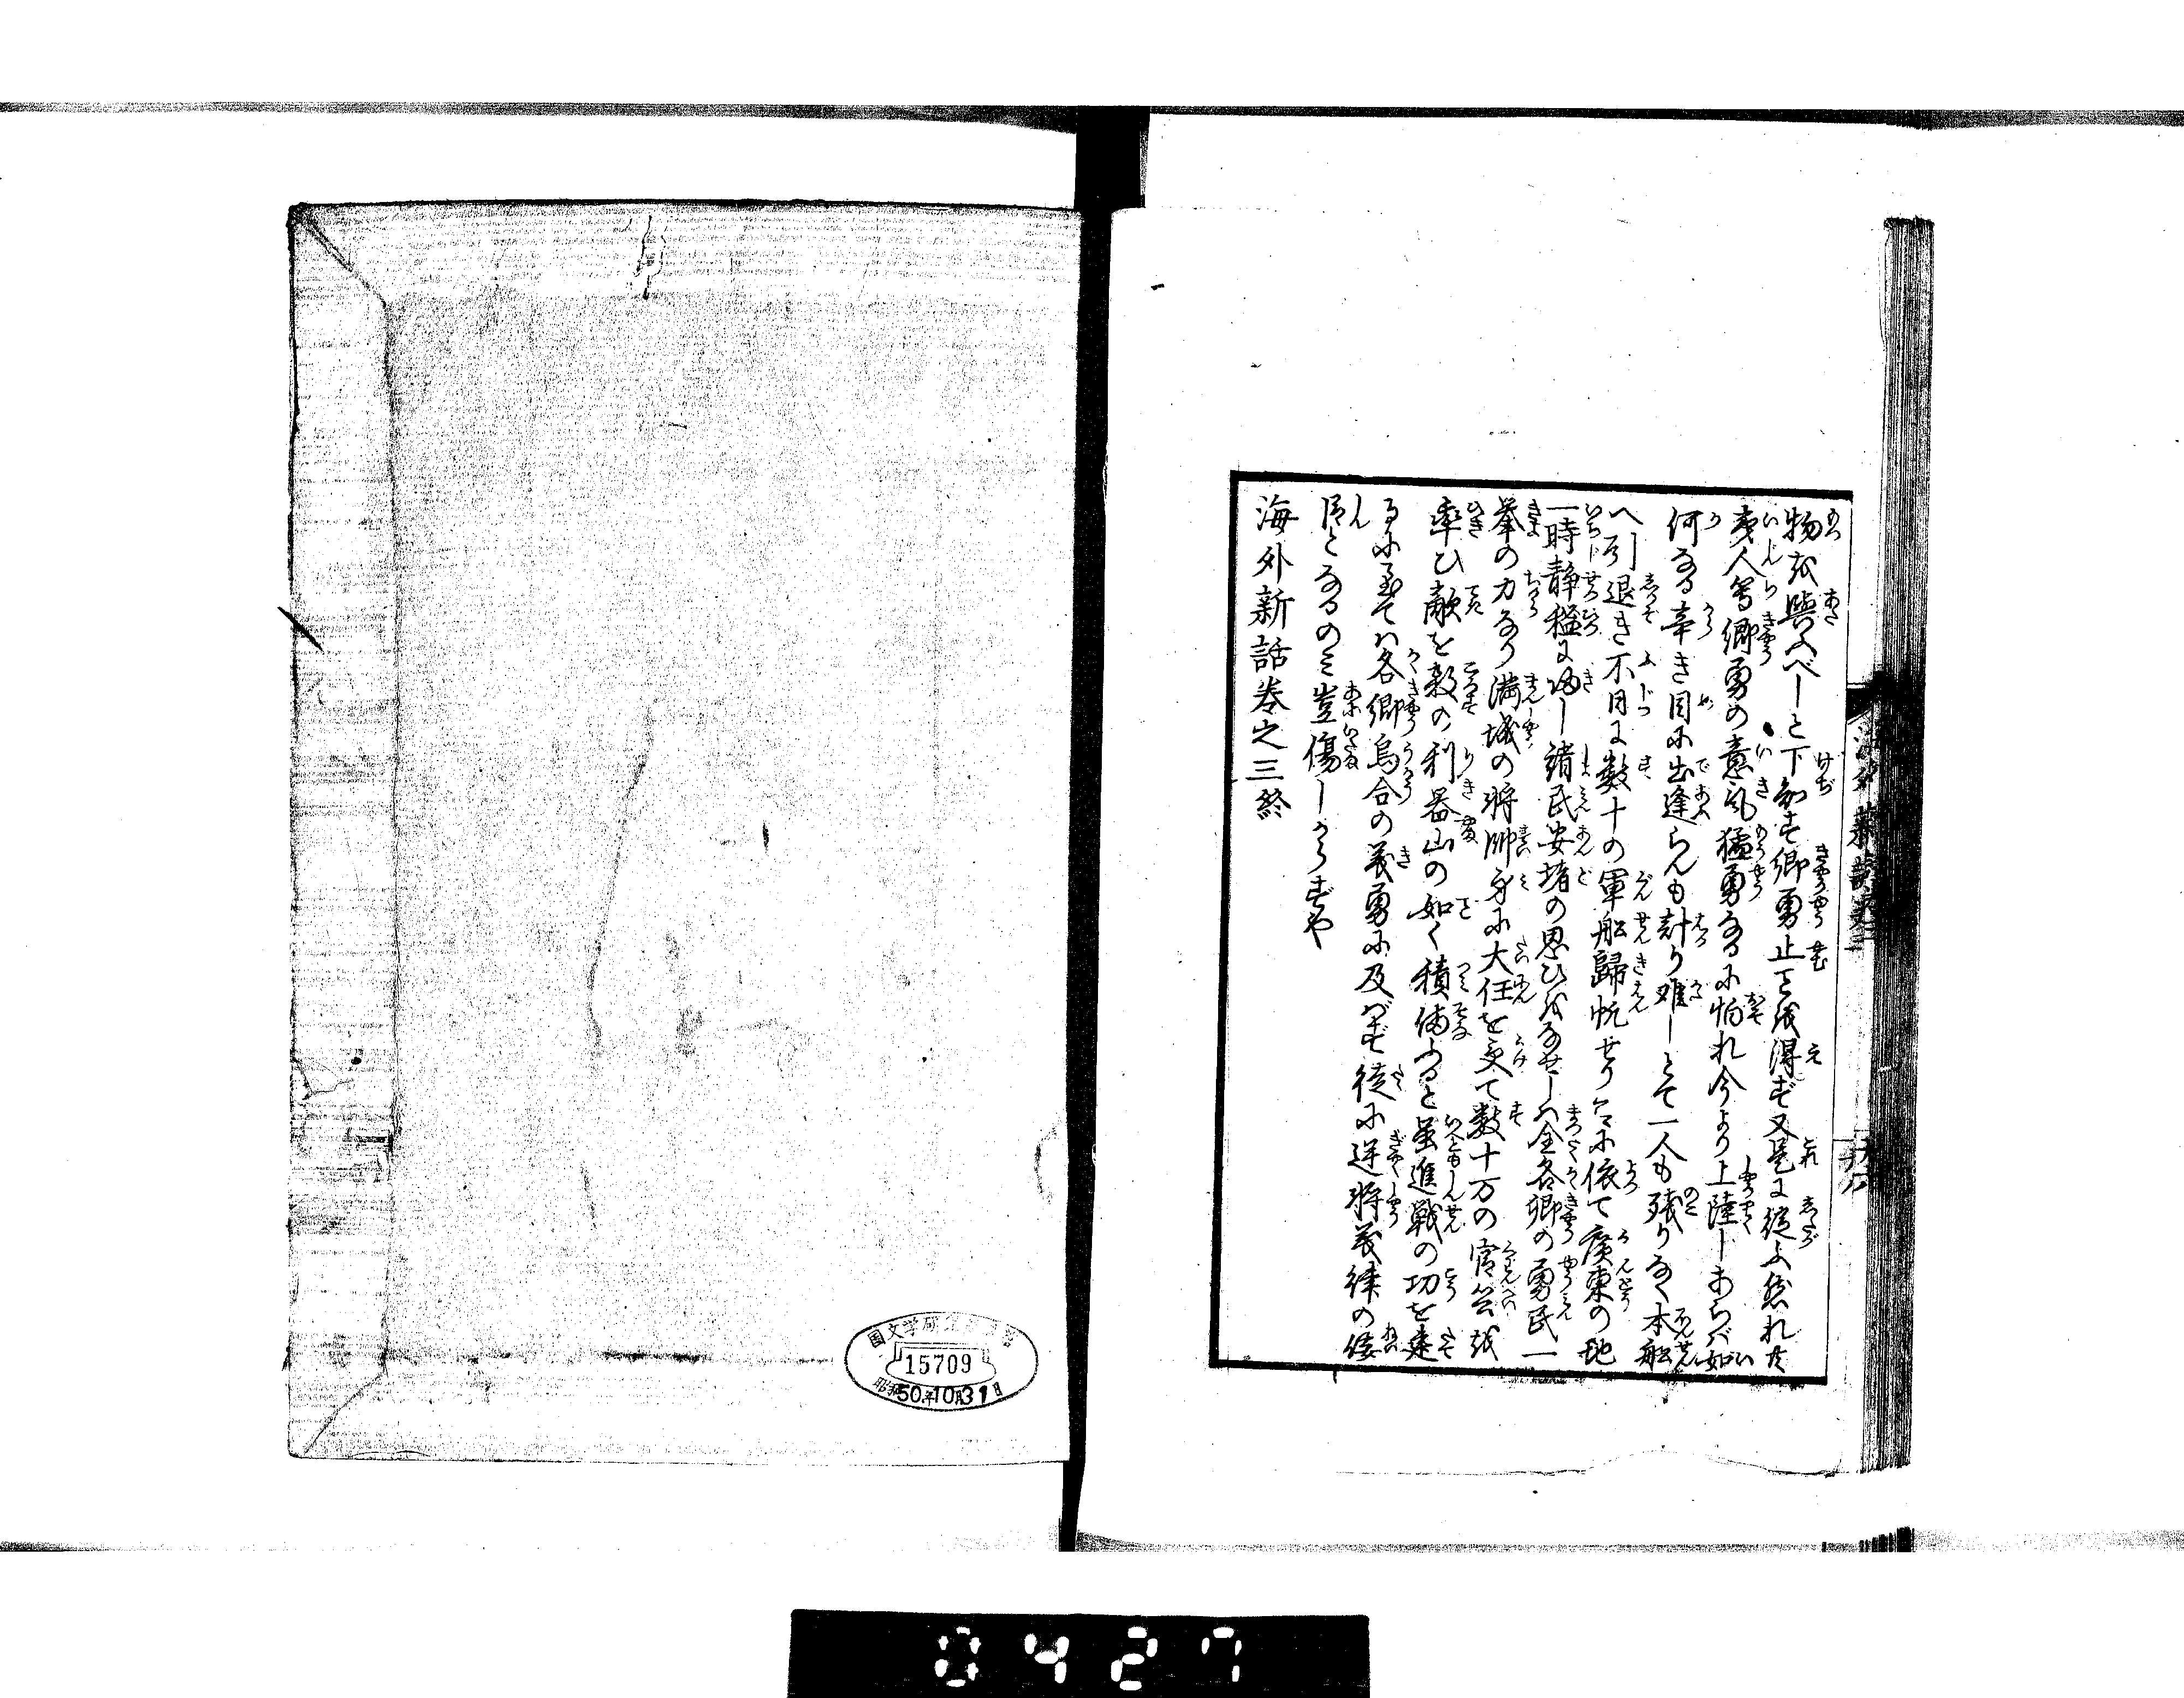 物を與ふべしと下知す郷勇止ことを得ず又是に從ふ然れ共
夷人等郷勇の意氣猛勇なるに怕れ今より上陸しあらば如
何なる辛き目に出逢らんも計り難しとて一人も残りなく本船
へ引退き不日に数十の軍船歸帆せり是に依て廣東の地
一時静穏に帰し諸民安堵の思ひをなせしハ全各郷の勇民一
挙の力なり満城の将帥身に大任を受て数十万の官兵を
率ひ敵を殺の利器山の如く積備ふると雖進戦の功を建
るに至てハ各郷烏合の義勇に及バず徒に逆将義律の倭
となるのミ豈傷しからずや
海外新話巻之三終
海外新話巻三
国文学研究資料館
15709
昭和50年10月31日
0427